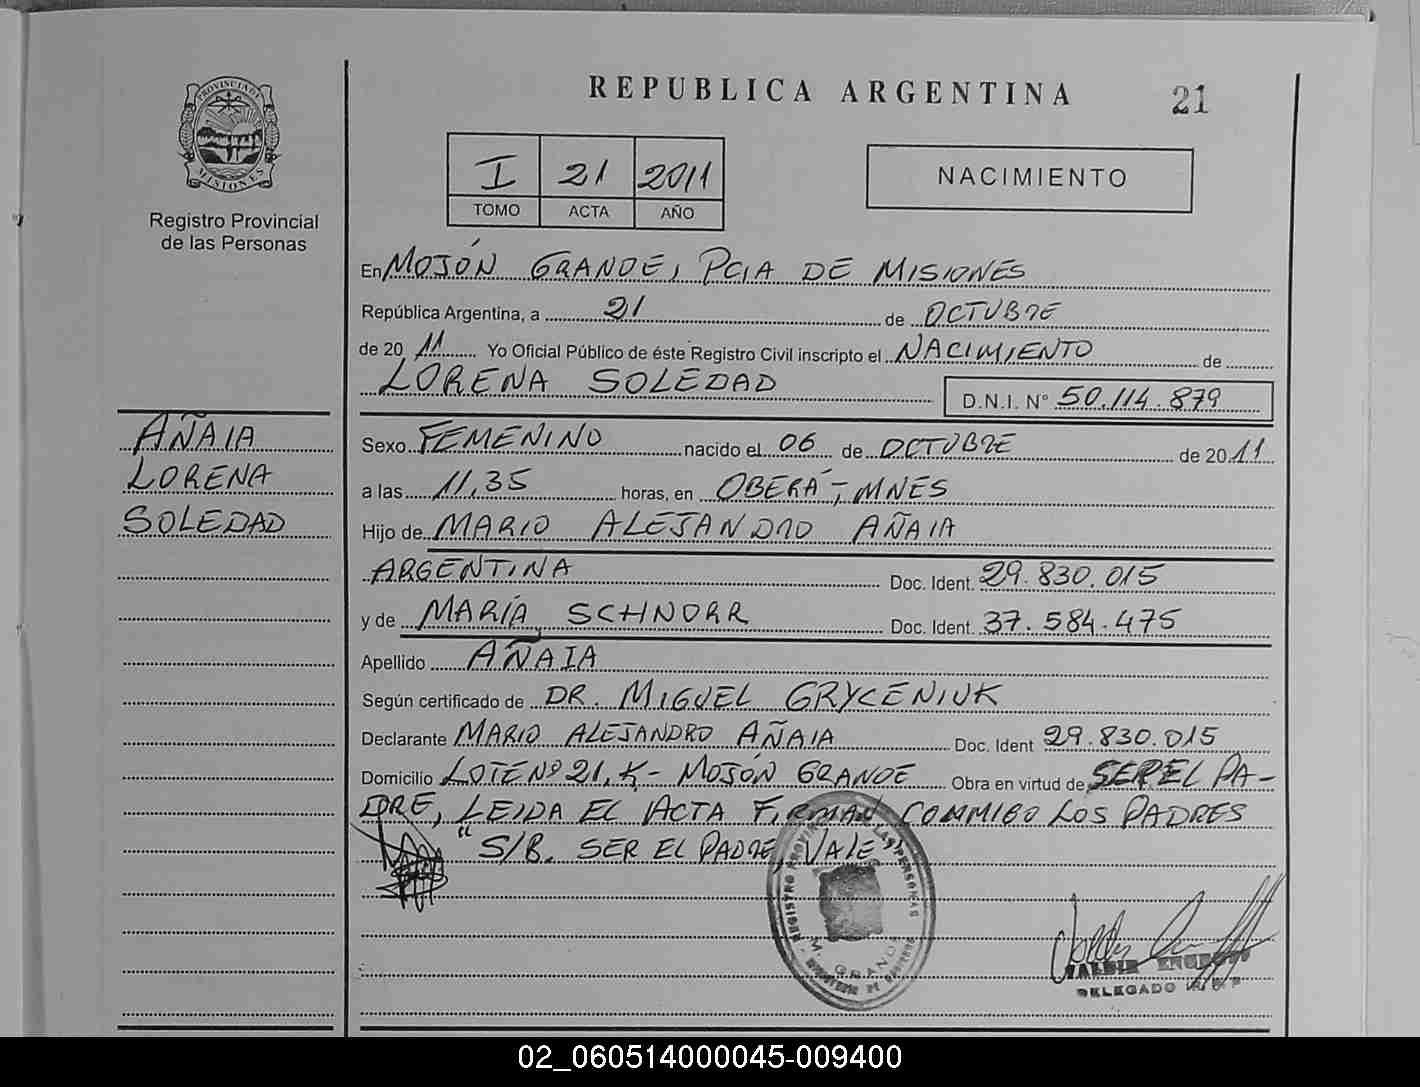 REPUBLICA ARGENTINA
21
PROVINCIA DE
MISIONES
Registro Provincial
de las Personas
I 21 2011
TOMO ACTA AÑO
NACIMIENTO
En MOJÓN GRANDE, PCIA DE MISIONES
República Argentina, a 21 de OCTUBRE
de 20 11 Yo Oficial Público de éste Registro Civil inscripto el NACIMIENTO de
LORENA SOLEDAD D.N.I. N° 50.114.879
AÑAIA
LORENA
SOLEDAD
Sexo FEMENINO nacido el 06 de OCTUBRE de 20 11
a las 11,35 horas, en OBERÁ-, MNES
Hijo de MARIO ALEJANDRO AÑAIA
ARGENTINA Doc. Ident. 29.830.015
y de MARÍA SCHNORR Doc. Ident. 37.584.475
Apellido AÑAIA
Según certificado de DR. MIGUEL GRYCENIUK
Declarante MARIO ALEJANDRO AÑAIA Doc. Ident 29.830.015
Domicilio LOTE Nº 21, K- MOJÓN GRANDE Obra en virtud de SER EL PA-
DRE, LEIDA EL ACTA FIRMAN COMMIGO LOS PADRES
"S/B. SER EL PADRE, VALE"
REGISTRO PROVINCIAL DE LAS PERSONAS
M. GRANDE
VALDIR
DELEGADO
02_060514000045-009400